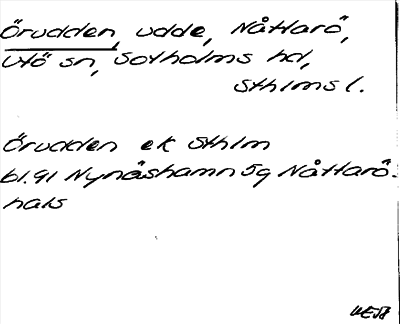 Örudden, udde, Nåttarö,
Utö sn, Sotholms hd,
Sthlms l.
Örudden ek Sthlm
bl.91 Nynäshamn 5g Nåttarö-
hals